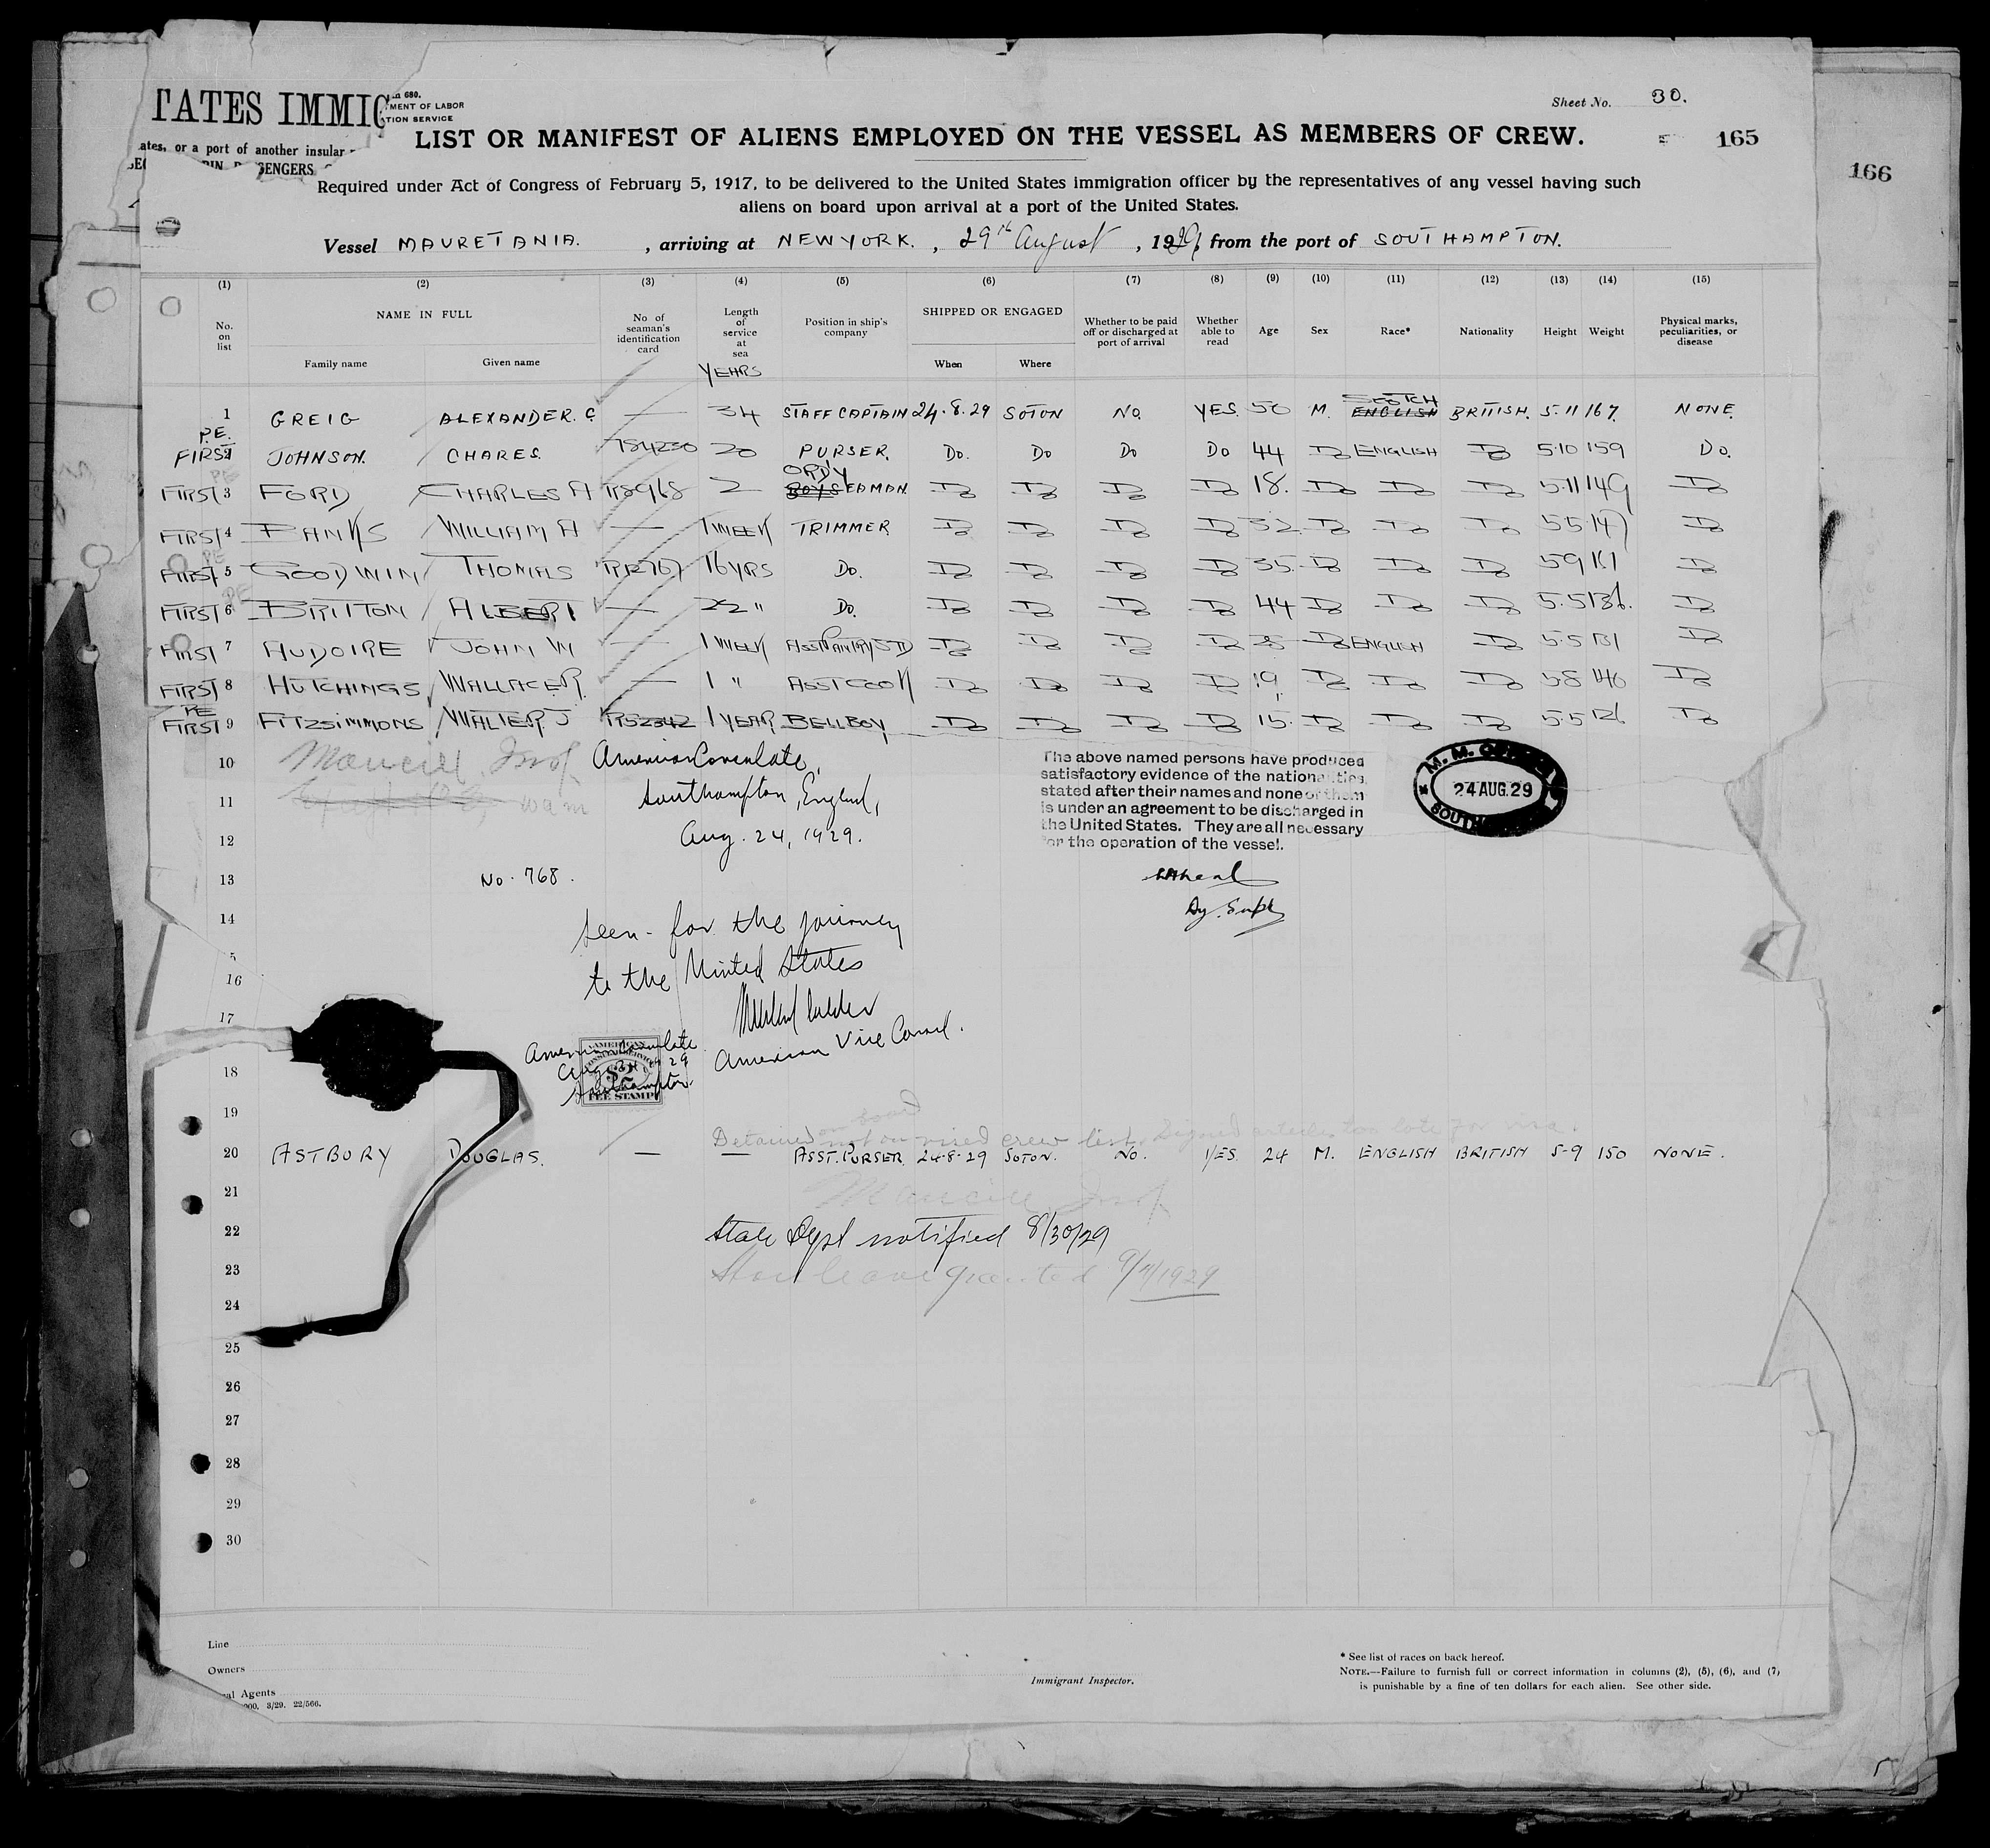 TATES IMMIG
680.
MENT OF LABOR
TION SERVICE
ates, or a port of another insular
Sheet No. 30.
LIST OR MANIFEST OF ALIENS EMPLOYED ON THE VESSEL AS MEMBERS OF CREW.
165
166
Required under Act of Congress of February 5, 1917, to be delivered to the United States immigration officer by the representatives of any vessel having such
aliens on board upon arrival at a port of the United States.
Vessel MAURETANIA. , arriving at NEW YORK. , 29th August , 1929, from the port of SOUTHAMPTON.
(1) (2) (3) (4) (5) (6) (7) (8) (9) (10) (11) (12) (13) (14) (15)
No. on list NAME IN FULL Family name Given name No. of seaman's identification card Length of service at sea YEARS Position in ship's company SHIPPED OR ENGAGED When Where Whether to be paid off or discharged at port of arrival Whether able to read Age Sex Race* Nationality Height Weight Physical marks, peculiarities, or disease
1 GREIG ALEXANDER. C — 34 STAFF CAPTAIN 24.8.29 SOTON NO. YES. 50 M. SCOTCH ENGLISH BRITISH. 5.11 167. NONE.
P.E.
FIRST 2 JOHNSON. CHARES. 784230 20 PURSER. DO. DO DO DO 44 DO ENGLISH DO 5.10 159 DO.
FIRST 3 FORD CHARLES A R8968 2 ORDY BOY SEAMAN DO DO DO DO 18. DO DO DO 5.11 149 DO
FIRST 4 BANKS WILLIAM A — 1 WEEK TRIMMER DO DO DO DO 32 DO DO DO 5.5 147 DO
FIRST 5 GOODWIN THOMAS 16 YRS DO. DO DO DO DO 35 DO DO DO 5.9 161 DO
FIRST 6 BRITTON ALBERT — 22 " DO. DO DO DO DO 44 DO DO DO 5.5 136. DO
FIRST 7 AUDOIRE JOHN W — 1 WEEK ASST PANTRY STD DO DO DO DO 28 DO ENGLISH DO 5.5 131 DO
FIRST 8 HUTCHINGS WALLACE R. — 1 " ASST COOK DO DO DO DO 19 DO DO DO 5.8 146 DO
PE
FIRST 9 FITZSIMMONS WALTER J R52342 1 YEAR BELLBOY DO DO DO DO 15. DO DO DO 5.5 126 DO
10 Mancill Insp.
11
12
13
14
16
17
18
19
American Consulate,
Southampton, England,
Aug. 24, 1929.
No. 768.
Seen - for the journey
to the United States
American Vice Consul.
The above named persons have produced
satisfactory evidence of the nationalities
stated after their names and none of them
is under an agreement to be discharged in
the United States. They are all necessary
for the operation of the vessel.
Dy. Supt
24 AUG. 29
American Consulate
Aug 24 29
Southampton
AMERICAN
$2
FEE STAMP
Detained on board not on visaed crew list. Signed articles too late for visa.
20 ASTBURY DOUGLAS. — — ASST. PURSER. 24.8.29 SOTON. NO. YES. 24 M. ENGLISH BRITISH 5-9 150 NONE.
21 Mancill Insp.
22 State Dept notified 8/30/29
23 Shore leave granted 9/4/1929
24
25
26
27
28
29
30
Line
Owners
al Agents
000. 3/29. 22/566.
Immigrant Inspector.
* See list of races on back hereof.
NOTE.—Failure to furnish full or correct information in columns (2), (5), (6), and (7,
is punishable by a fine of ten dollars for each alien. See other side.